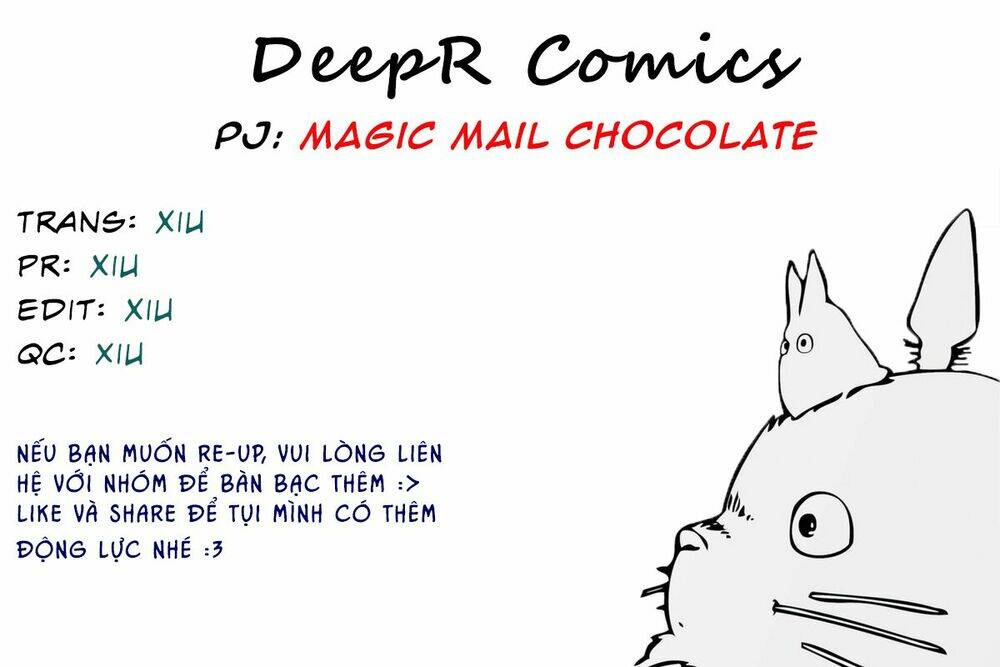 DeepR Comics
PJ: MAGIC MAIL CHOCOLATE
TRANS: XIU
PR: XIU
EDIT: XIU
QC: XIU
NẾU BẠN MUỐN RE-UP, VUI LÒNG LIÊN
HỆ VỚI NHÓM ĐỂ BÀN BẠC THÊM :>
LIKE VÀ SHARE ĐỂ TỤI MÌNH CÓ THÊM
ĐỘNG LỰC NHÉ :3